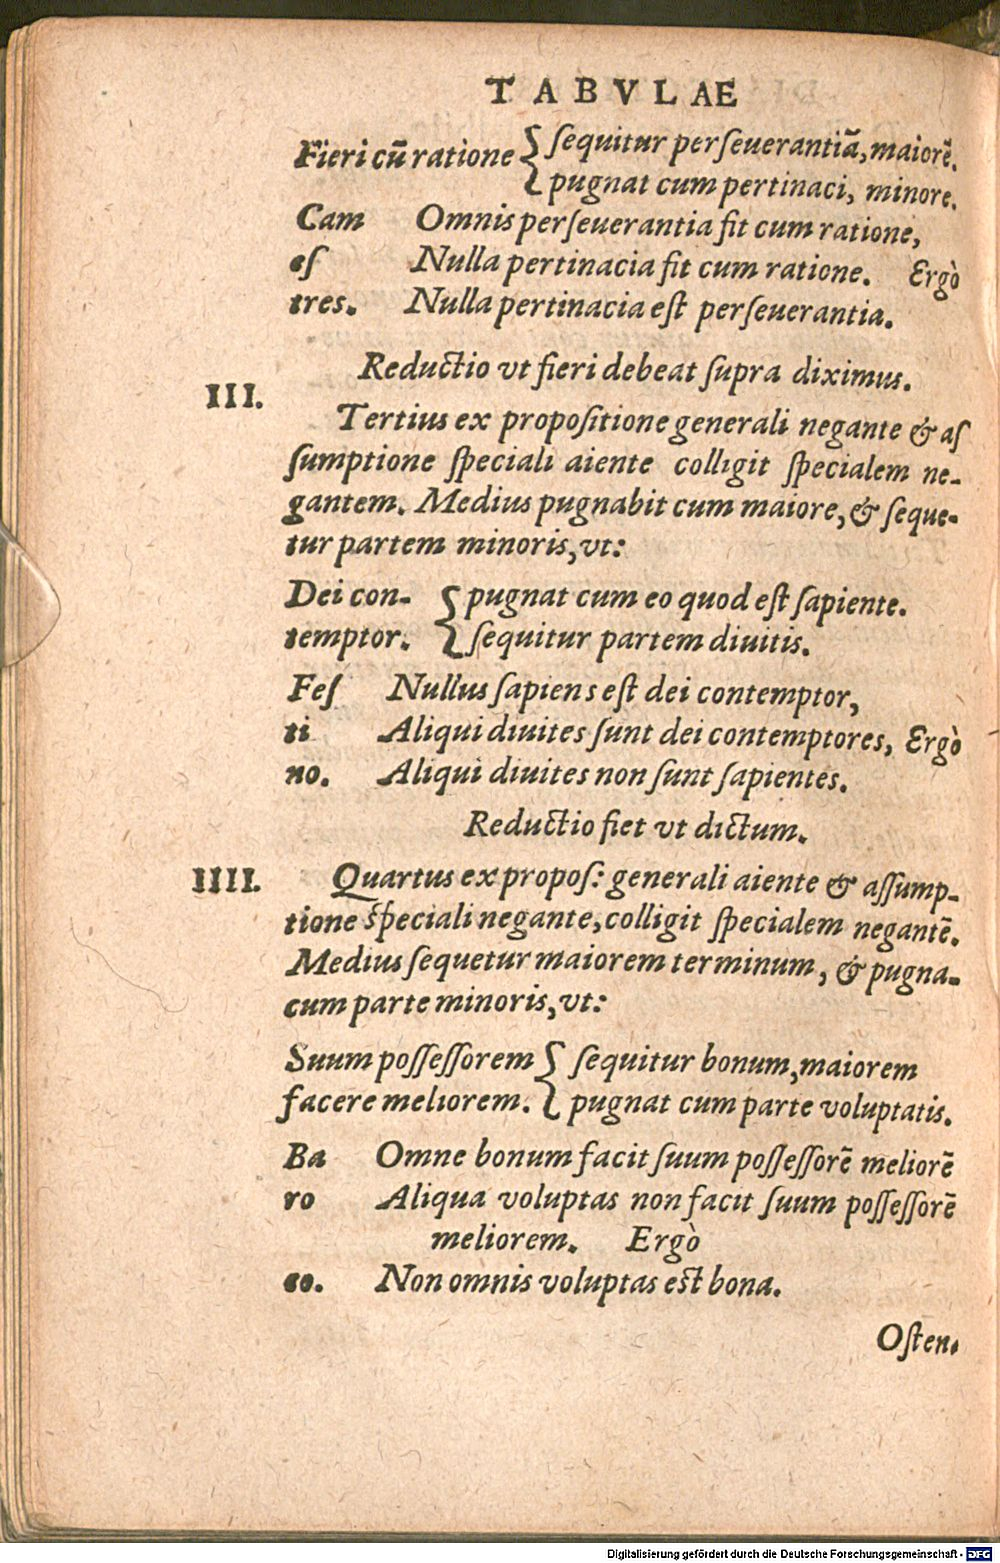 TABVLAE
Fieri cū ratione { sequitur perseuerantiā, maiorē.
pugnat cum pertinaci, minore.
Cam Omnis perseuerantia fit cum ratione,
es Nulla pertinacia fit cum ratione. Ergò
tres. Nulla pertinacia est perseuerantia.
Reductio vt fieri debeat supra diximus.
III.
Tertius ex propositione generali negante & as
sumptione speciali aiente colligit specialem ne-
gantem. Medius pugnabit cum maiore, & seque-
tur partem minoris, vt:
Dei con- { pugnat cum eo quod est sapiente.
temptor. sequitur partem diuitis.
Fes Nullus sapiens est dei contemptor,
ti Aliqui diuites sunt dei contemptores, Ergò
no. Aliqui diuites non sunt sapientes.
Reductio fiet vt dictum.
IIII. Quartus ex propos: generali aiente & assump-
tione speciali negante, colligit specialem negantē.
Medius sequetur maiorem terminum, & pugna-
cum parte minoris, vt:
Suum possessorem { sequitur bonum, maiorem
facere meliorem. pugnat cum parte voluptatis.
Ba Omne bonum facit suum possessorē meliorē
ro Aliqua voluptas non facit suum possessorē
meliorem. Ergò
co. Non omnis voluptas est bona.
Osten-
Digitalisierung gefördert durch die Deutsche Forschungsgemeinschaft - DFG